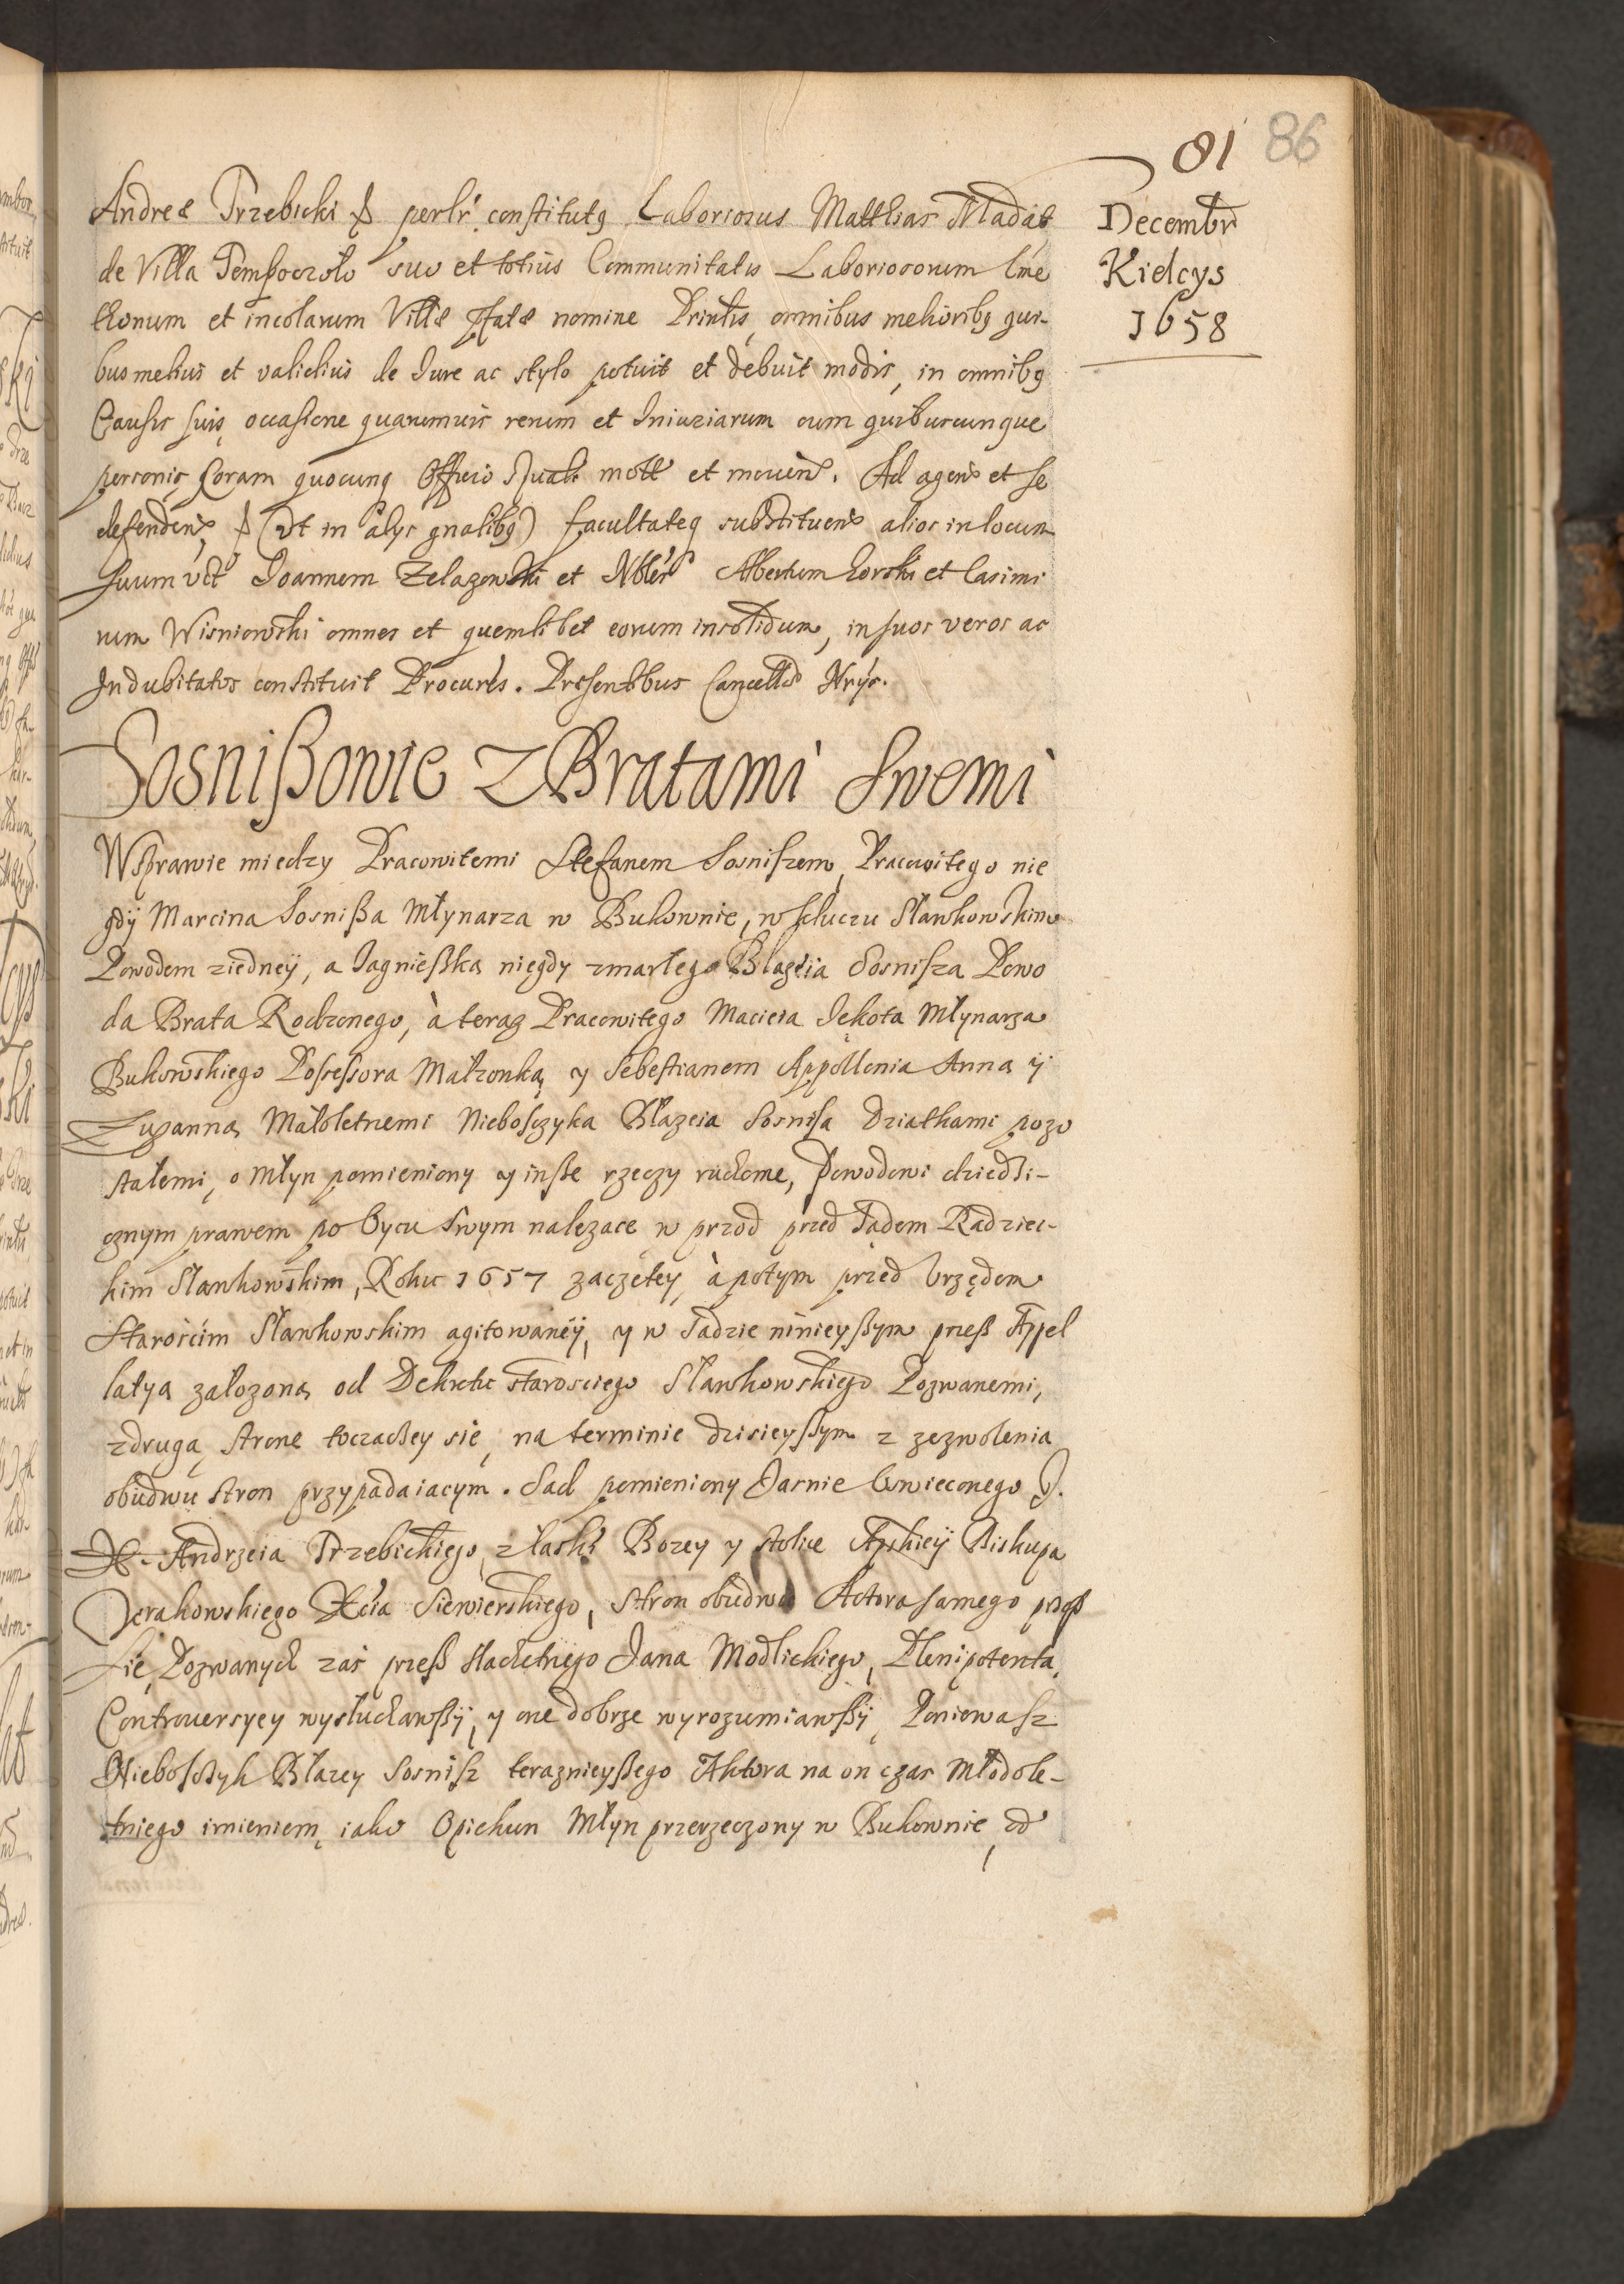 81 86
Decembr
Kielcys
1658
Andreæ Trzebicki & perlr constitutq Laboriosus Matthias Madat
de Villa Tempoczoło suo et totius Communitatis Laboriosorum Cme
thonum et incolarum Villæ ptatæ nomine Printis, omnibus melioribq qui-
bus melius et validius de Iure ac stylo potuit et debuit modis, in omnibq
Causis suis, occasione quarumuis rerum et Iniuriarum cum quibuscunque
personis, Coram quocunq Officio Spuali mott et mouend. Ad agend et se
defendend, & (vt in alys gnalibq) facultateq substituend alios in locum
suum vct Ioannem Zelazowski et Nbles Albertum Gorski et Casimi
rum Wisniowski omnes et quemlibet eorum insolidum, in suos veros ac
Indubitatos constituit Procures. Præsentbus Cancellæ Nrjs.
Sosnißowie z Bratami Swemi
W sprawie miedzy Pracowitemi Stefanem Sosniszem, Pracowitego nie
gdÿ Marcina Sosnißa Młynarza w Bukownie, w kluczu Sławkowskim
Powodem ziedneÿ, a Iagnießką niegdy zmarłego Błażeia Sosnisza Powo
da Brata Rodzonego, à teraz Pracowitego Macieia Iękota Młynarza
Bukowskiego Possessora Małzonką y Sebestianem Appollonia Anna ÿ
Zuzanną Małoletnemi Nieboszczyka Błazeia Sosnisza Dziatkami pozo
stałemi, o Młyn pomieniony y inße rzeczy ruchome, Powodowi dziedzi-
cznym prawem po Oycu Swym nalezace w przod przed Sądem Radziec-
kim Sławkowskim, Roku 1657 zaczętey, à potym przed Vrzędem
Starościm Sławkowskim agitowanéÿ, y w Sadzie ninieyßym przeß Appel
latyą załozoną od Dekretu starosciego Sławkowskiego Pozwanemi,
zdrugą stronę toczachey się, na terminie dzisieyßym z zezwolenia
obudwu stron przypadaiacym. Sad pomieniony Jasnie Oswieconego J.
X. Andrzeia Trzebickiego, z łaski Bozey y stolice Apskieÿ Biskupa
Krakowskiego Xcia Siewierskiego, stron obudwu Actora samego przeß
się, Pozwanych zas przeß slachetnego Jana Modlickiego, Plenipotenta,
Controuersyey wysłuchawßÿ, y one dobrze wyrozumiawßÿ, Poniewasz
Nieboszczyk Błazey Sosnisz teraznieyßego Aktora na on czas Młodole-
tniego imieniem, iako Opiekun Młyn przerzeczony w Bukownie, od